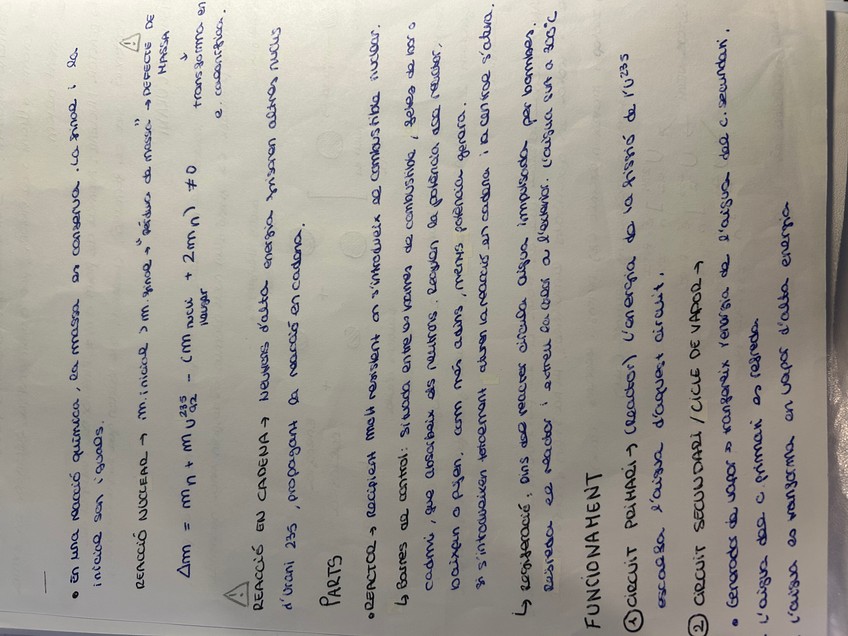 • En una reacció química, la massa es conserva. La final i la
inicial són iguals.
REACCIÓ NUCLEAR → m inicial > m. final → "pèrdua de massa" → DEFECTE DE MASSA
↓
transforma en
e. calorífica.
Δm = mn + m U 235 92 - (m nucli lleuger + 2mn) ≠ 0
REACCIÓ EN CADENA → Neutrons d'alta energia fisionen altres nuclis
d'urani 235, propagant la reacció en cadena.
PARTS
• REACTOR → Recipient molt resistent on s'introdueix el combustible nuclear.
↳ Barres de control: Situada entre les barres de combustible, fetes de bor o
cadmi, que absorbeix els neutrons. Regulen la potència del reactor,
baixen o pujen. Com més adins, menys potència genera.
Si s'introdueixen totalment aturen la reacció en cadena i la central s'atura.
↳ Refrigeració: Dins del reactor circula aigua impulsada per bombes.
Refreda el reactor i extreu la calor a l'exterior. L'aigua surt a 300°C
FUNCIONAMENT
① CIRCUIT PRIMARI → (reactor) L'energia de la fissió de l'U235
escalfa l'aigua d'aquest circuit.
② CIRCUIT SECUNDARI / CICLE DE VAPOR →
• Generador de vapor → transfereix l'energia de l'aigua del c. secundari.
L'aigua del c primari es refreda.
L'aigua es transforma en vapor d'alta energia